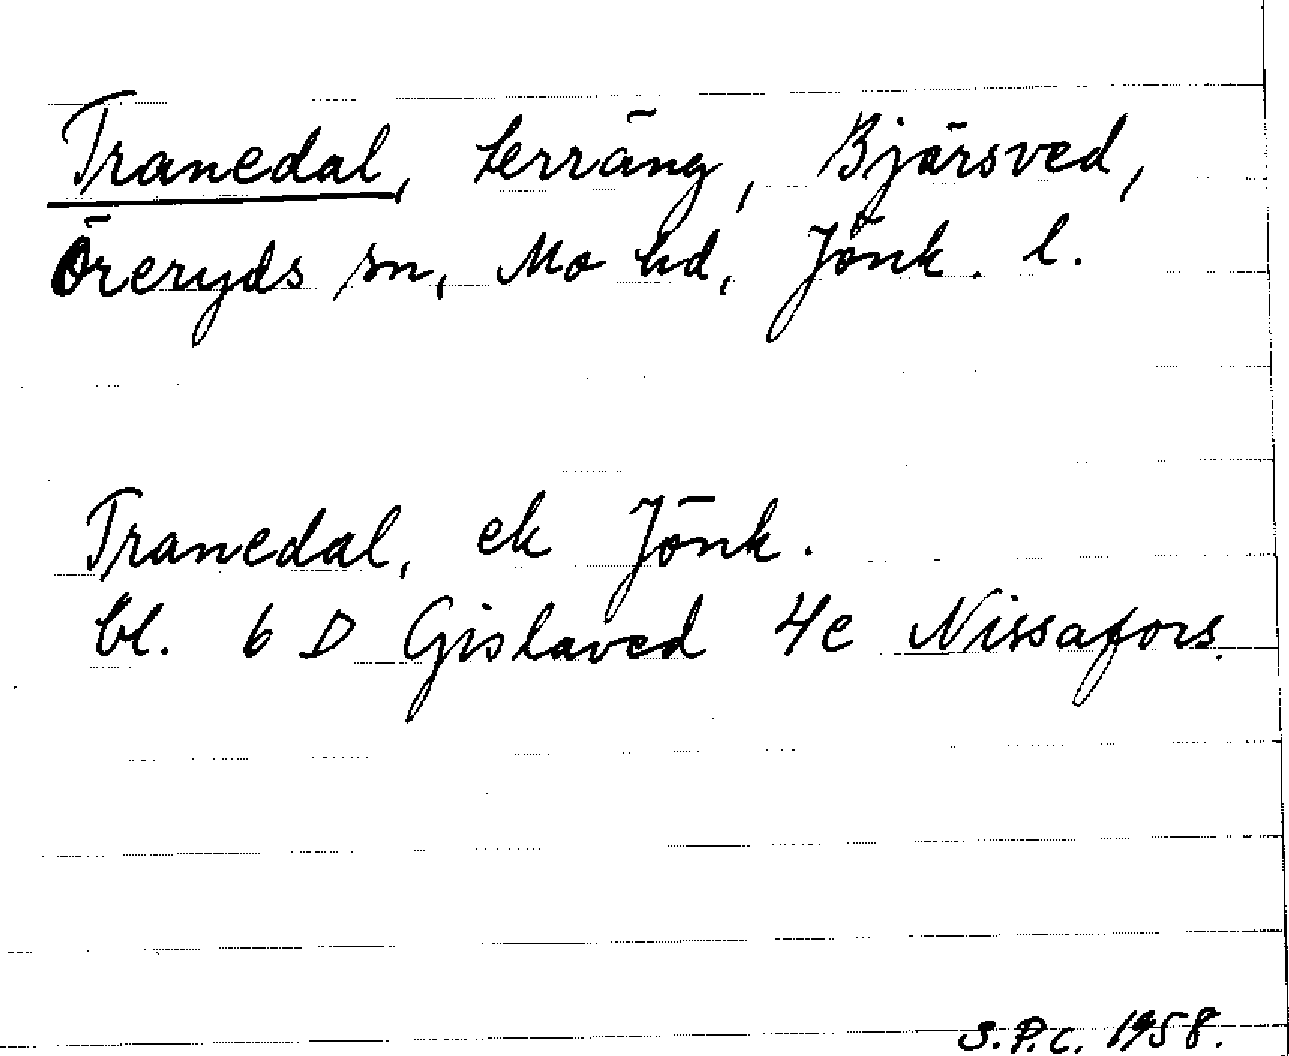 Tranedal, terräng, Bjärsved,
Öreryds sn, Mo hd, Jönk. l.
Tranedal, ek Jönk.
bl. 6 D Gislaved 4e Nissafors.
S.P.C. 1958.